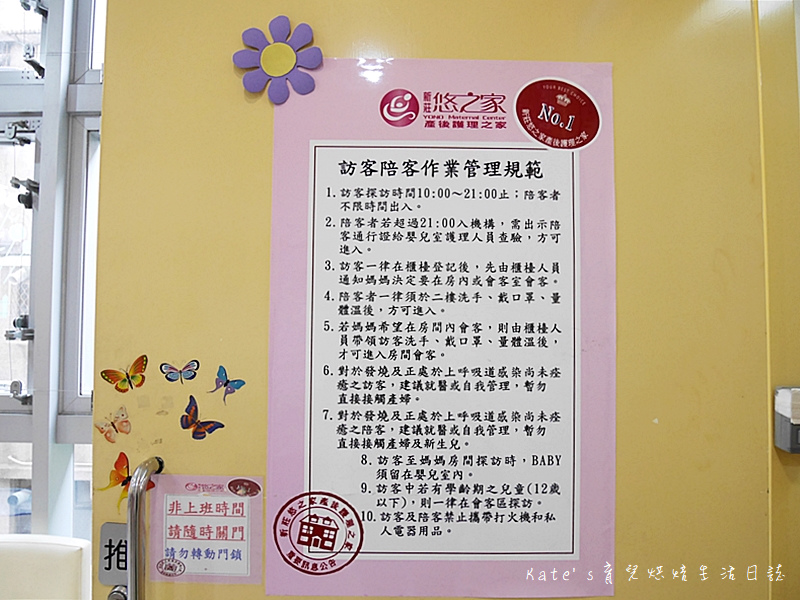 新莊
悠之家
YOHO Maternal Center
產後護理之家
YOUR BEST CHOICE
No.1
新莊悠之家產後護理之家
訪客陪客作業管理規範
1.訪客探訪時間10:00～21:00止；陪客者
不限時間出入。
2.陪客者若超過21:00入機構，需出示陪
客通行證給嬰兒室護理人員查驗，方可
進入。
3.訪客一律在櫃檯登記後，先由櫃檯人員
通知媽媽決定要在房內或會客室會客。
4.陪客者一律須於二樓洗手、戴口罩、量
體溫後，方可進入。
5.若媽媽希望在房間內會客，則由櫃檯人
員帶領訪客洗手、戴口罩、量體溫後，
才可進入房間會客。
6.對於發燒及正處於上呼吸道感染尚未痊
癒之訪客，建議就醫或自我管理，暫勿
直接接觸產婦。
7.對於發燒及正處於上呼吸道感染尚未痊
癒之陪客，建議就醫或自我管理，暫勿
直接接觸產婦及新生兒。
8.訪客至媽媽房間探訪時，BABY
須留在嬰兒室內。
9.訪客中若有學齡期之兒童(12歲
以下)，則一律在會客區探訪。
10.訪客及陪客禁止攜帶打火機和私
人電器用品。
新莊悠之家產後護理之家
重要訊息公告
悠之家
非上班時間
請隨時關門
請勿轉動門鎖
推
Kate's育兒烘焙生活日誌